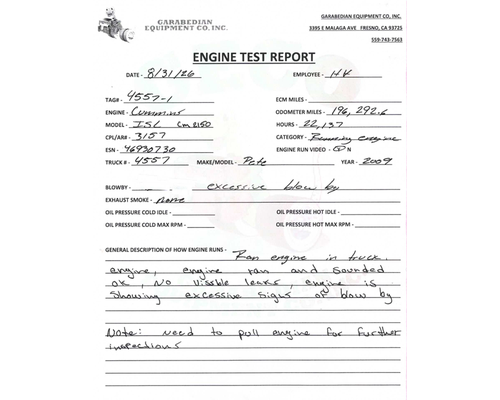 GARABEDIAN
EQUIPMENT CO, INC.
GARABEDIAN EQUIPMENT CO, INC.
3395 E MALAGA AVE FRESNO, CA 93725
559-743-7563
ENGINE TEST REPORT
DATE - 8/31/26 EMPLOYEE - HK
TAG# - 4557-1 ECM MILES -
ENGINE - Cummins ODOMETER MILES - 196,292.6
MODEL - ISL Cm2150 HOURS - 22,137
CPL/AR# - 3157 CATEGORY - Running engine
ESN - 46930730 ENGINE RUN VIDEO - Y N
TRUCK # - 4557 MAKE/MODEL - Pete YEAR - 2009
BLOWBY - excessive blow by
EXHAUST SMOKE - none
OIL PRESSURE COLD IDLE - OIL PRESSURE HOT IDLE -
OIL PRESSURE COLD MAX RPM - OIL PRESSURE HOT MAX RPM -
GENERAL DESCRIPTION OF HOW ENGINE RUNS - Ran engine in truck.
engine, engine ran and sounded
ok, No vissble leaks, engine is
showing excessive signs of blow by
Note: need to pull engine for further
inspections